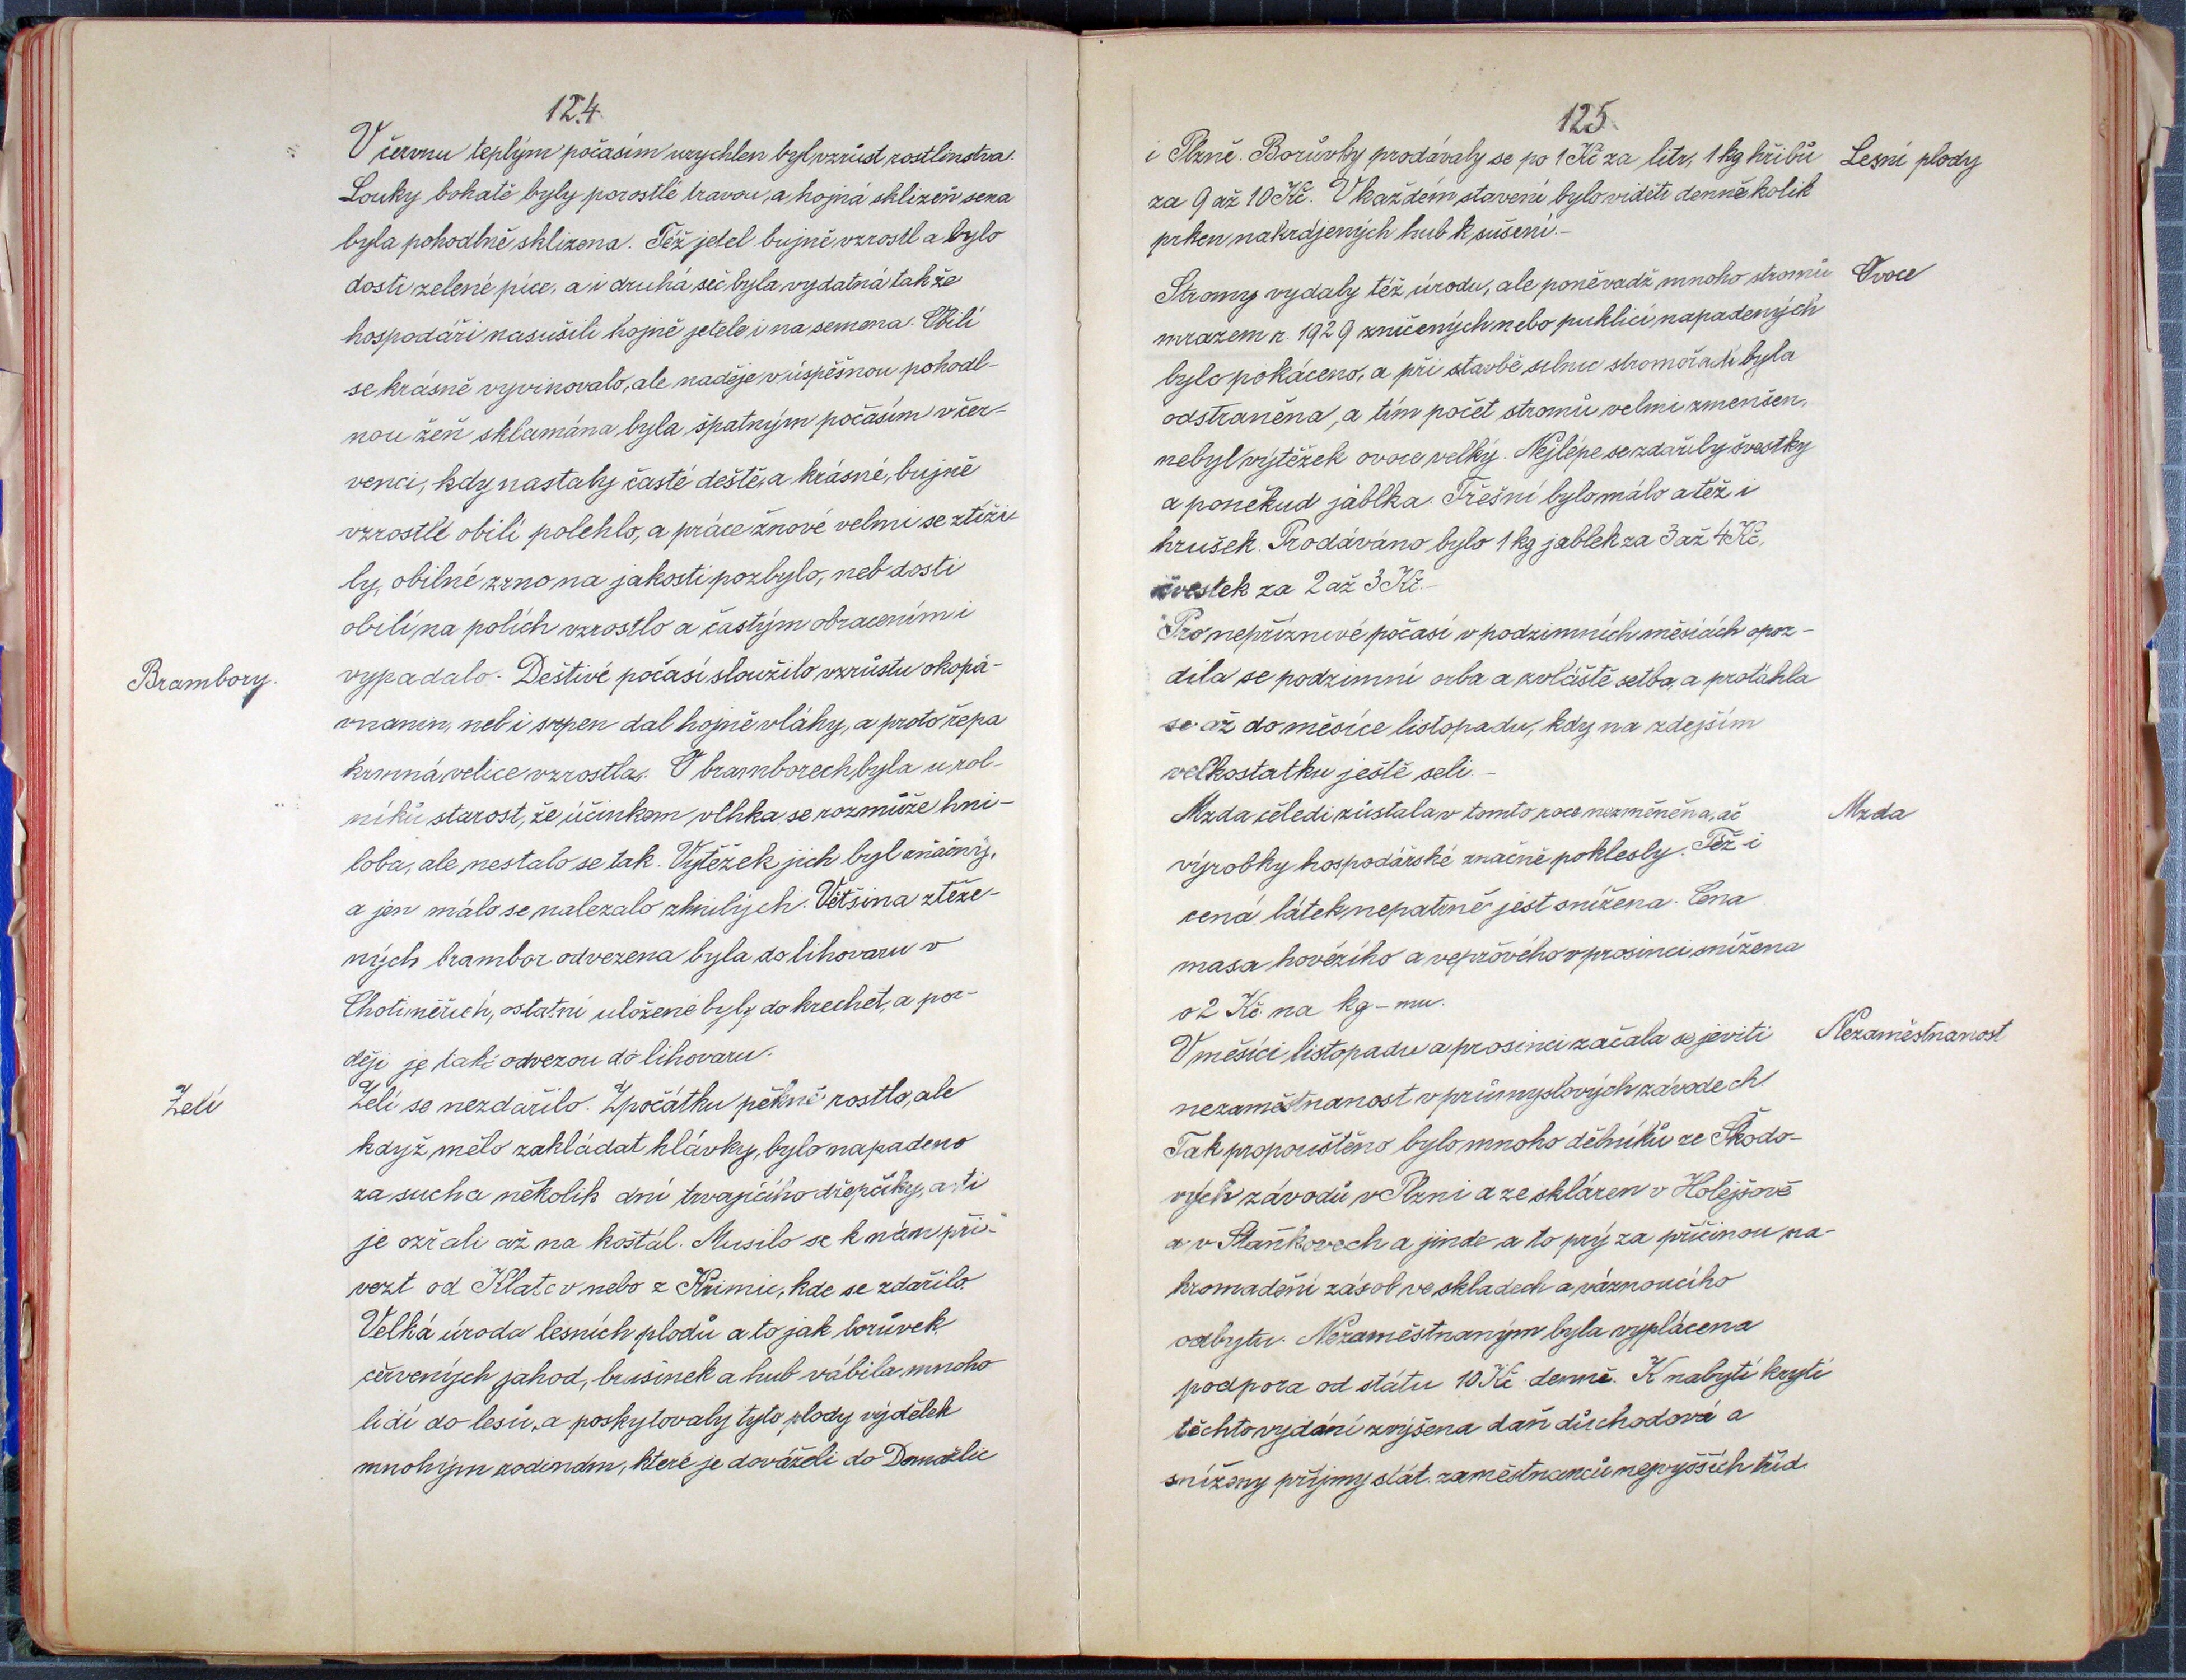 124
V červnu teplým počasím urychlen byl vzrůst rostlinstva.
Louky bohatě byly porostlé travou, a hojná sklizeň sena
byla pohodlně sklizena. Též jetel bujně vzrostl a bylo
dosti zelené píce, a i druhá seč byla vydatná takže
hospodáři nasušili hojně jetele i na semena. Obilí
se krásně vyvinovalo, ale naděje v úspěšnou pohodl-
nou žeň sklamána byla špatným počasím v čer-
venci, kdy nastaly časté deště, a krásné, bujně
vzrostlé obilí polehlo, a práce žnové velmi se ztíži-
ly, obilné zrno na jakosti pozbylo, neb dosti
obilí na polích vzrostlo a častým obracením i
Brambory.
vypadalo. Deštivé počasí sloužilo vzrůstu okopá-
vnanin, neb i srpen dal hojně vláhy, a proto řepa
krmná velice vzrostla. O bramborech byla u rol-
níků starost, že účinkem vlhka se rozmůže hni-
loba, ale nestalo se tak. Výtěžek jich byl značný,
a jen málo se nalezalo zhnilých. Většina ztěže-
ných brambor odvezena byla do lihovaru v
Chotiměřích, ostatní uložené byly do krechet, a poz-
ději je také odvezou do lihovaru.
Zelí
Zelí se nezdařilo. Zpočátku pěkně rostlo, ale
když mělo zakládat hlávky, bylo napadeno
za sucha několik dní trvajícího dřepčíky, a ti
je ožrali až na košťál. Musilo se k nám při-
vezt od Klatov nebo z Křimic, kde se zdařilo.
Velká úroda lesních plodů a to jak borůvek,
červených jahod, brusinek a hub vábila mnoho
lidí do lesů, a poskytovaly tyto plody výdělek
mnohým rodinám, které je dováželi do Domažlic
125
i Plzně. Borůvky prodávaly se po 1 Kč za litr, 1 kg hřibů
Lesní plody
za 9 až 10 Kč. V každém stavení bylo viděti denně kolik
prken nakrájených hub k sušení.-
Stromy vydaly též úrodu, ale poněvadž mnoho stromů
Ovoce
mrazem r. 1929 zničených nebo puklicí napadených
bylo pokáceno, a při stavbě silnic stromořadí byla
odstraněna, a tím počet stromů velmi zmenšen,
nebyl výtěžek ovoce velký. Nejlépe se zdařily švestky
a poněkud jablka. Třešní bylo málo a též i
hrušek. Prodáváno bylo 1 kg jablek za 3 až 4 Kč,
švestek za 2 až 3 Kč.-
Pro nepříznivé počasí v podzimních měsících opoz-
dila se podzimní orba a zvláště setba, a protáhla
se až do měsíce listopadu, kdy na zdejším
velkostatku ještě seli.-
Mzda čeledi zůstala v tomto roce nezměněna, ač
Mzda
výrobky hospodářské značně poklesly. Též i
cená látek nepatrně jest snížena. Cena
masa hovězího a vepřového v prosinci snížena
o 2 Kč na kg-mu.
V měsíci listopadu a prosinci začala se jeviti
Nezaměstnanost
nezaměstnanost v průmyslových závodech.
Tak propouštěno bylo mnoho dělníků ze Škodo-
vých závodů v Plzni a ze skláren v Holejšově
a v Staňkovech a jinde a to prý za příčinou na-
hromadění zásob ve skladech a váznoucího
odbytu. Nezaměstnaným byla vyplácena
podpora od státu 10 Kč denně. K nabytí krytí
těchto vydání zvýšena daň důchodová a
sníženy příjmy stát. zaměstnanců nejvyšších tříd.